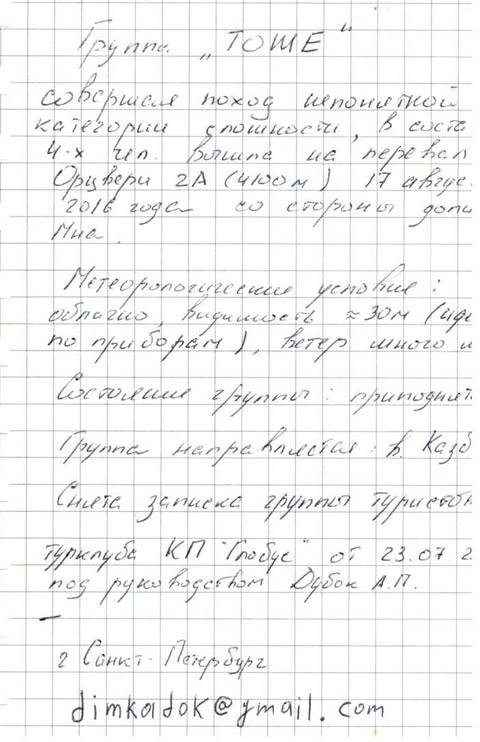 Группа „ТОШЕ"
совершая поход непонятной
категории сложности, в соста
4-х чел. вышла на перевал
Орцвери 2А (4100м) 17 авгус
2016 года со стороны доли
Мна.
Метеорологические условие:
облачно, видимость ≈30м (иде
по приборам), ветер много
Состояние группы: приподнят
Группа направляется: в. Казб
Снята записка группы туристов
турклуба КП "Глобус" от 23.07.2
под руководством Дубок А.П.
г Санкт-Петербург
dimkadok@gmail.com